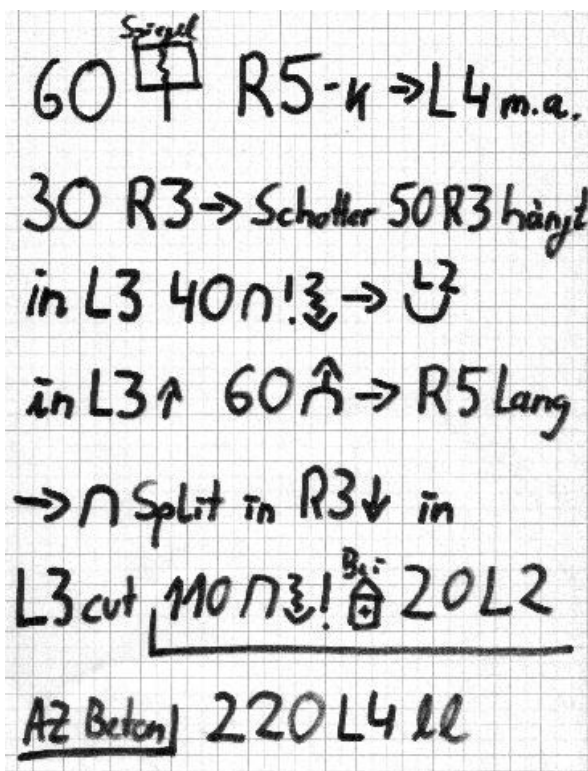 Spiegel
60 R5-k → L4 m.a.
30 R3 → Schotter 50 R3 hängt
in L3 40 ∩! → L2
in L3 ↑ 60 → R5 Lang
→ ∩ Split in R3 ↓ in
Bei
L3 cut 110 ∩ ! 20 L2
AZ Beton 220 L4 ll